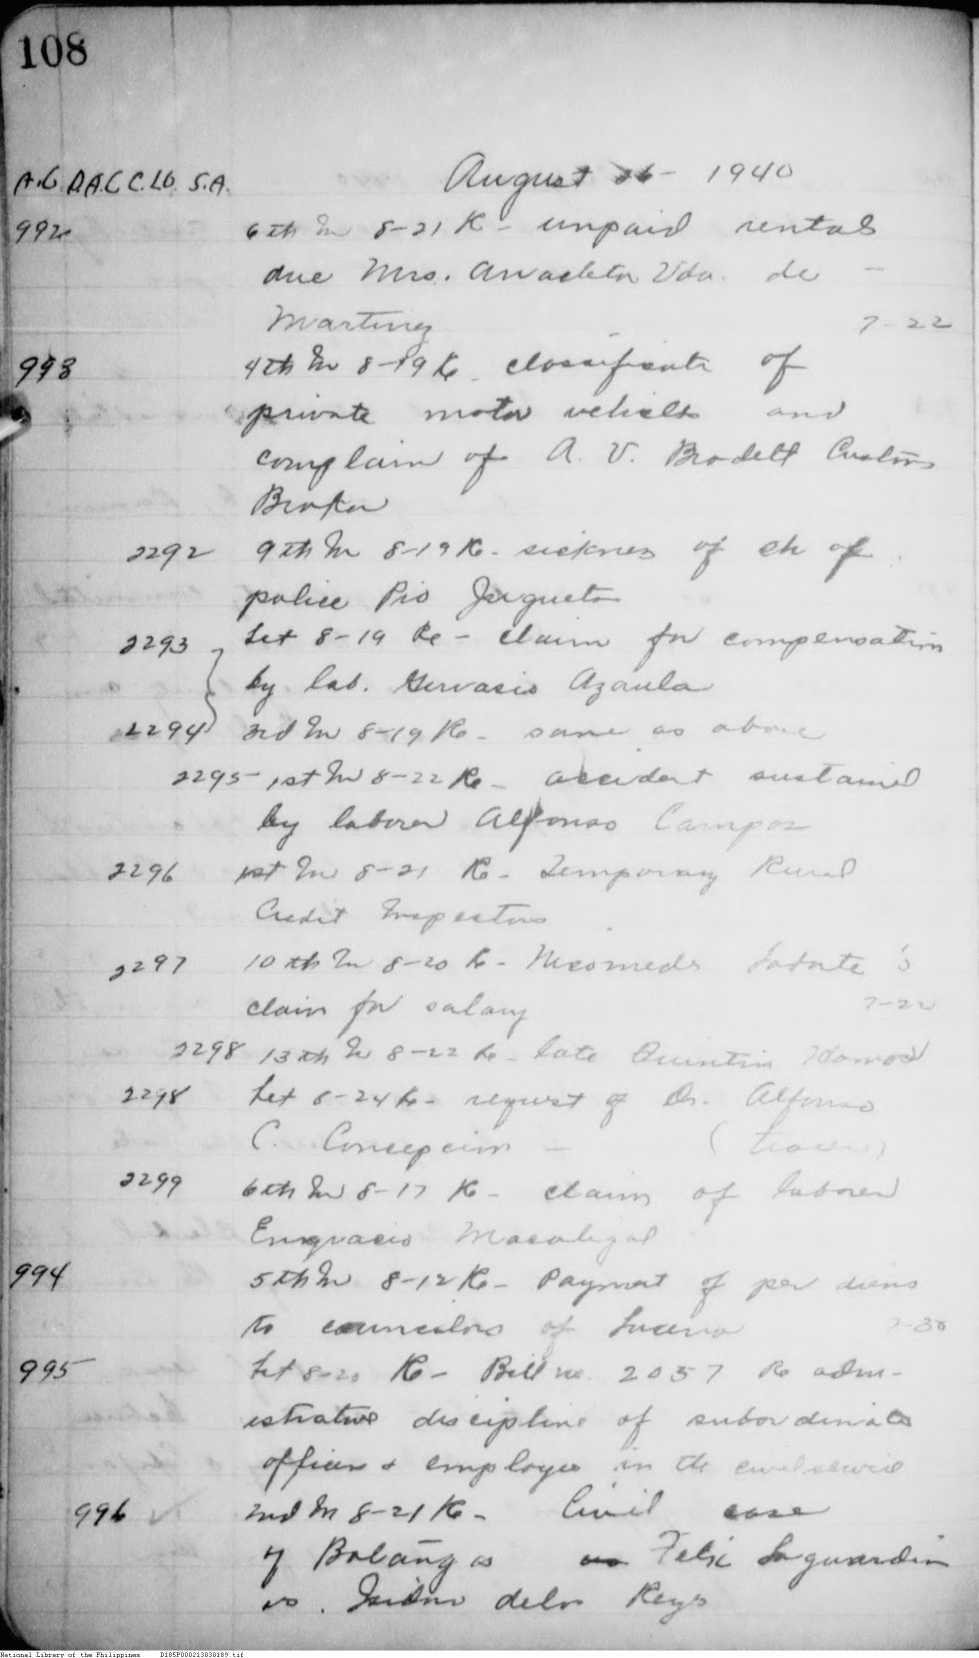 108
A.G. D.A.C C.LO. S.A.
August 26 - 1940
992 6th In 8-21 Re - unpaid rentals
due Mrs. Anacleta Vda. de -
Martinez 7-22
993 4th In 8-19 Re - classificate of
private motor vehicles and
complaim of A. V. Brodett Customs
Broker
2292 9th In 8-19 Re - sickness of ch of
police Pio Jugueta
2293 Let 8-19 Re - claim for compensation
by lab. Gervasio Azaula
2294 3rd In 8-19 Re - same as above
2295 - 1st In 8-22 Re - accident sustained
by laborer Alfonso Campos
2296 1st In 8-21 Re - Temporary Rural
Credit Inspectors
2297 10th In 8-20 Re - Nicomedes 's
claim for salary 7-22
2298 13th In 8-22 Re - late Quintin
2298 Let 8-24 Re - request of Dr. Alfonso
C. Concepcion - (tracer)
2299 6th In 8-17 Re - claim of laborer
Engracio Macalegal
994 5th In 8-12 Re - Payment of per diems
to councilors of Lucena 7-30
995 Let 8-20 Re - Bill no. 2057 Re adm-
istrative discipline of subordinate
officers & employee in the civil service
996 2nd In 8-21 Re - Civil case
of Batangas Felix Laguardia
vs. Isidro delos Reys
National Library of the Philippines D185P000213038189.tif